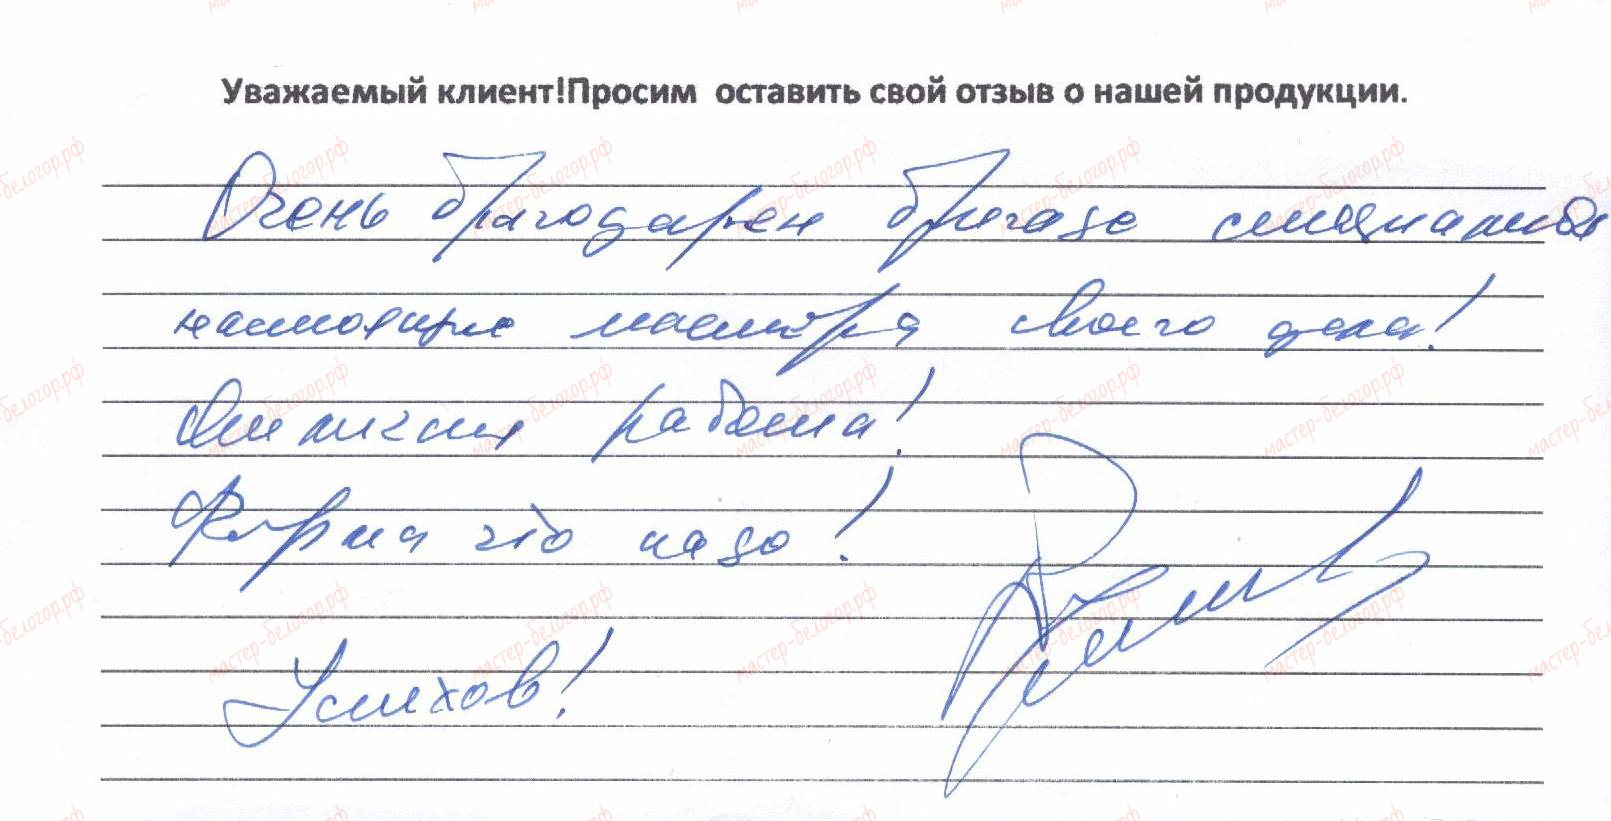 Уважаемый клиент!Просим оставить свой отзыв о нашей продукции.
Очень благодарен бригаде специалистов
настоящие мастера своего дела!
Отличная работа!
Фирма что надо!
Успехов!
мастер-белогор.рф